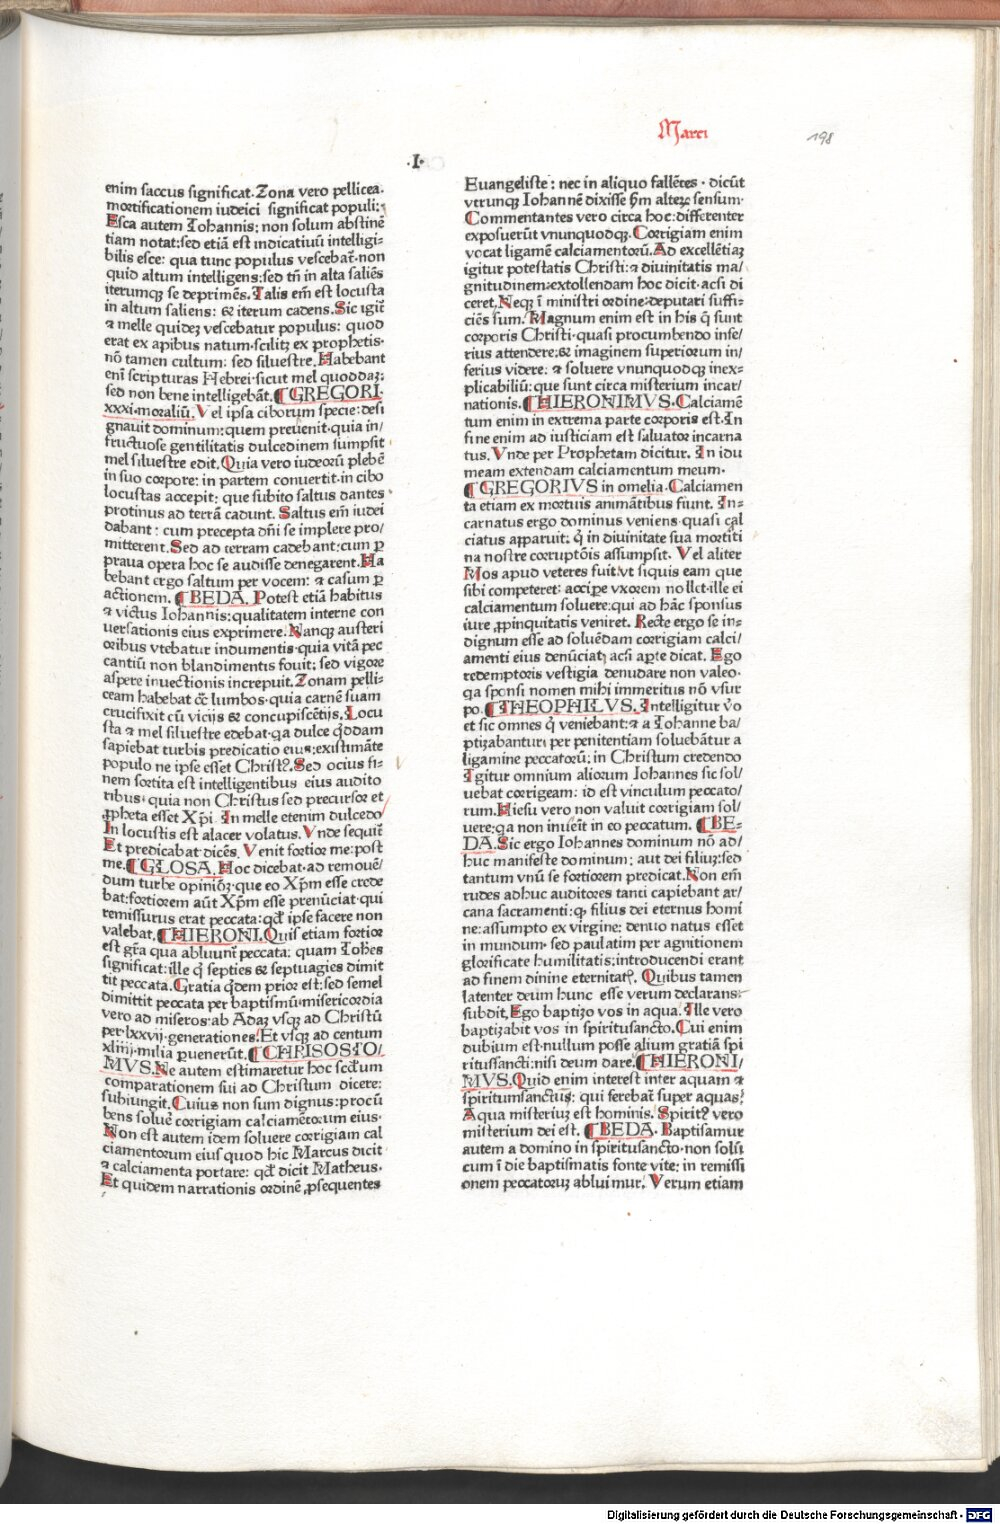 Marci
198
·I·
enim saccus significat. Zona vero pellicea.
mortificationem iudeici significat populi:
Esca autem Iohannis: non solum abstinē
tiam notat: sed etiā est indicatiuū intelligi-
bilis esce: qua tunc populus vescebat᷑·non
quid altum intelligens: sed tñ in alta saliēs
iterumqꝫ se deprimēs. Talis em̄ est locusta
in altum saliens: & iterum cadens. Sic igit᷑
⁊ melle quideꝫ vescebatur populus: quod
erat ex apibus natum·scilitꝫ ex prophetis·
nō tamen cultum: sed siluestre. Habebant
eni᷑ scripturas Hebrei·sicut mel quoddaꝫ:
sed non bene intelligebāt. ¶GREGORI·
xxxi·moraliū. Vel ipsa ciborum specie: desi
gnauit dominum: quem preuenit·quia in/
fructuose gentilitatis dulcedinem sumpsit
mel siluestre edit. Quia vero iudeorū plebē
in suo corpore: in partem conuertit·in cibo
locustas accepit: que subito saltus dantes
protinus ad terrā cadunt. Saltus em̄ iudei
dabant: cum precepta dn̄i se implere pro/
mitterent. Sed ad terram cadebant: cum ꝑ
praua opera hoc se audisse denegarent. Ha
bebant ergo saltum per vocem: ⁊ casum ꝑ
actionem. ¶BEDA. Potest etiā habitus
⁊ victus Iohannis: qualitatem interne con
uersationis eius exprimere. Nanqꝫ austeri
oribus vtebatur indumentis·quia vitā pec
cantiū non blandimentis fouit: sed vigore
aspere inuectionis increpuit. Zonam pelli-
ceam habebat cc̄ lumbos·quia carnē suam
crucifixit cū vicijs & concupiscētijs. Locu
sta ⁊ mel siluestre edebat·qa dulce qddam
sapiebat turbis predicatio eius: existimāte
populo ne ipse esset Christ?. Sed ocius fi-
nem sortita est intelligentibus eius audito
ribus·quia non Christus sed precursor et
ꝓpheta esset Xp̄i. In melle etenim dulcedo
In locustis est alacer volatus. Vnde sequit᷑
Et predicabat dicēs. Venit fortior me: post
me. ¶GLOSA. Hoc dicebat·ad remouē/
dum turbe opinioꝫ·que eo Xp̄m esse crede
bat: fortiorem aūt Xp̄m esse prenūciat·qui
remissurus erat peccata: qd ipse facere non
valebat. ¶HIERONI. Quis etiam fortior
est gr̄a qua abluunt᷑ peccata: quam Iohēs
significat: ille q septies & septuagies dimit
tit peccata. Gratia qdem prior est: sed semel
dimittit peccata per baptismū·misericordia
vero ad miseros: ab Adaꝫ vsqꝫ ad Christū
per·lxxvij·generationes. Et vsqꝫ ad centum
xliiij·milia ꝑuenerūt. ¶CHRISOSTO/
MVS. Ne autem estimaretur hoc scdum
comparationem sui ad Christum dicere:
subiungit. Cuius non sum dignus: procū
bens soluē corrigiam calciamētorum eius·
Non est autem idem soluere corrigiam cal
ciamentorum eius quod hic Marcus dicit
⁊ calciamenta portare: qd dicit Matheus.
Et quidem narrationis ordinē ꝓsequentes
Euangeliste: nec in aliquo fallētes· dicūt
vtrunqꝫ Iohannē dixisse ẜm alteꝝ sensum·
Commentantes vero circa hoc: differenter
exposuerūt vnunquodqꝫ. Corrigiam enim
vocat ligamē calciamentorū. Ad excellētiaꝫ
igitur potestatis Christi: ⁊ diuinitatis ma/
gnitudinem: extollendam hoc dicit·acsi di
ceret. Neqꝫ ī ministri ordine: deputari suffi-
ciēs sum. Magnum enim est in his q sunt
corporis Christi·quasi procumbendo infe/
rius attendere: & imaginem superiorum in/
ferius videre: ⁊ soluere vnunquodqꝫ inex-
plicabiliū: que sunt circa misterium incar/
nationis. ¶HIERONIMVS. Calciamē
tum enim in extrema parte corporis est. In
fine enim ad iusticiam est saluator incarna
tus. Vnde per Prophetam dicitur. In idu
meam extendam calciamentum meum.
¶GREGORIVS in omelia. Calciamen
ta etiam ex mortuis animātibus fiunt. In-
carnatus ergo dominus veniens·quasi cal
ciatus apparuit: q in diuinitate sua morti
na nostre corruptōis assumpsit. Vel aliter
Mos apud veteres fuit·vt siquis eam que
sibi competeret: accipere vxorem nollet·ille ei
calciamentum soluere: qui ad hāc sponsus
iure ꝓpinquitatis veniret. Recte ergo se in-
dignum esse ad soluēdam corrigiam calci/
amenti eius denūciat: acsi aꝑte dicat. Ego
redemptoris vestigia denudare non valeo·
qa sponsi nomen mihi immeritus nō vsur
po. ¶THEOPHILVS. Intelligitur vo
et sic omnes q veniebant: ⁊ a Iohanne ba/
ptizabantur: per penitentiam soluebātur a
ligamine peccatorū: in Christum credendo
Igitur omnium aliorum Iohannes sic sol/
uebat corrigeam: id est vinculum peccato/
rum. Hiesu vero non valuit corrigiam sol/
uere: qa non inuēit in eo peccatum. ¶BE-
DA. Sic ergo Iohannes dominum nō ad/
huc manifeste dominum: aut dei filiuꝫ: sed
tantum vnū se fortiorem predicat. Non em̄
rudes adhuc auditores tanti capiebant ar/
cana sacramenti: qꝫ filius dei eternus homi
ne: assumpto ex virgine: denuo natus esset
in mundum· sed paulatim per agnitionem
glorificate humilitatis: introducendi erant
ad finem diuine eternitat?. Quibus tamen
latenter deum hunc esse verum declarans:
subdit. Ego baptizo vos in aqua. Ille vero
baptizabit vos in spiritusancto. Cui enim
dubium est·nullum posse alium gratiā spi
ritussancti: nisi deum dare. ¶HIERONI/
MVS. Quid enim interest inter aquam ⁊
spiritumsanctus: qui ferebat᷑ super aquas?
Aqua misteriuꝫ est hominis. Spirit? vero
misterium dei est. ¶BEDA. Baptisamur
autem a domino in spiritusancto·non solū
cum ī die baptismatis fonte vite: in remissi
onem peccatoruꝫ abluimur. Verum etiam
Digitalisierung gefördert durch die Deutsche Forschungsgemeinschaft - DFG